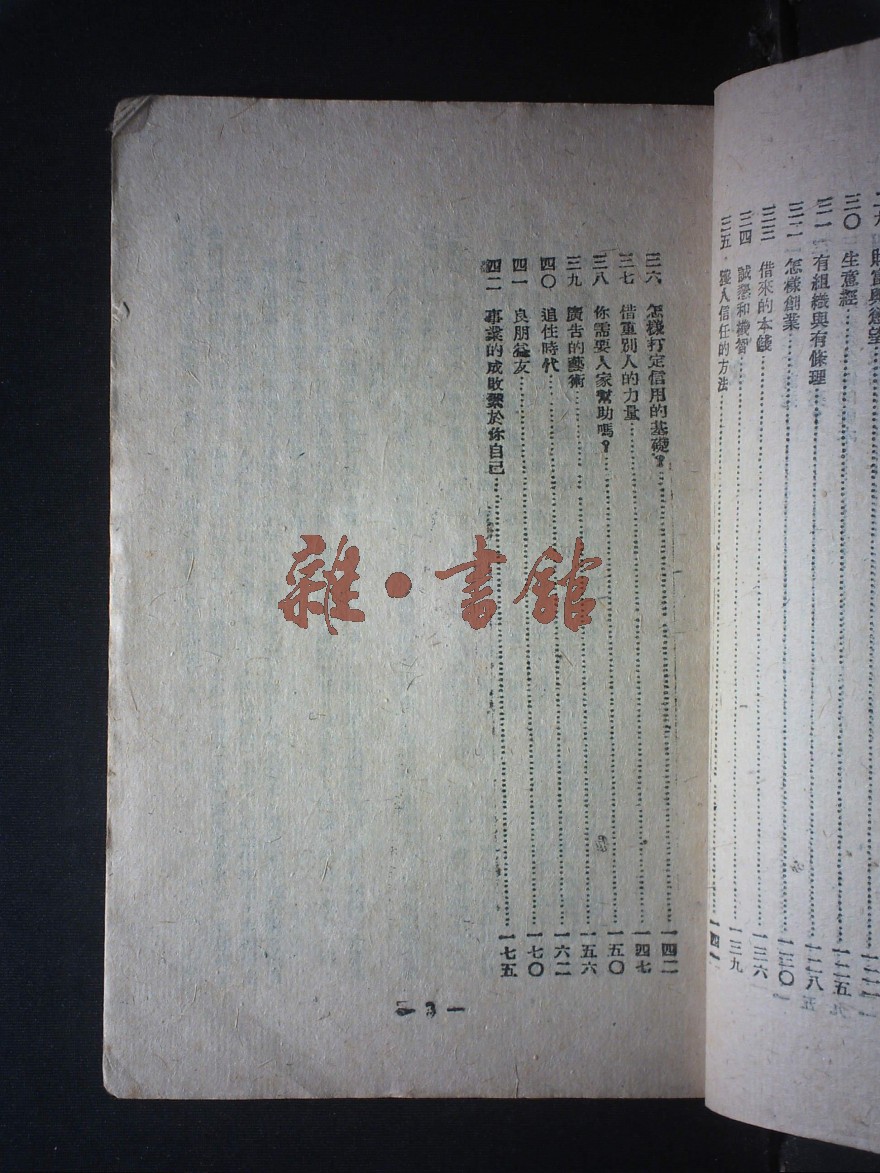 財富與慾望……一二二
三〇 生意經……一二五
三一 有組織與有條理……一二八
三二 怎樣創業……一三〇
三三 借來的本錢……一三六
三四 誠懇和機智……一三九
三五 獲人信任的方法……一四一
三六 怎樣打定信用的基礎?……一四二
三七 借重別人的力量……一四七
三八 你需要人家幫助嗎?……一五〇
三九 廣告的藝術……一五六
四〇 追住時代……一六二
四一 良朋益友……一七〇
四二 事業的成敗繫於你自己……一七五
— 3 —
雜·書館